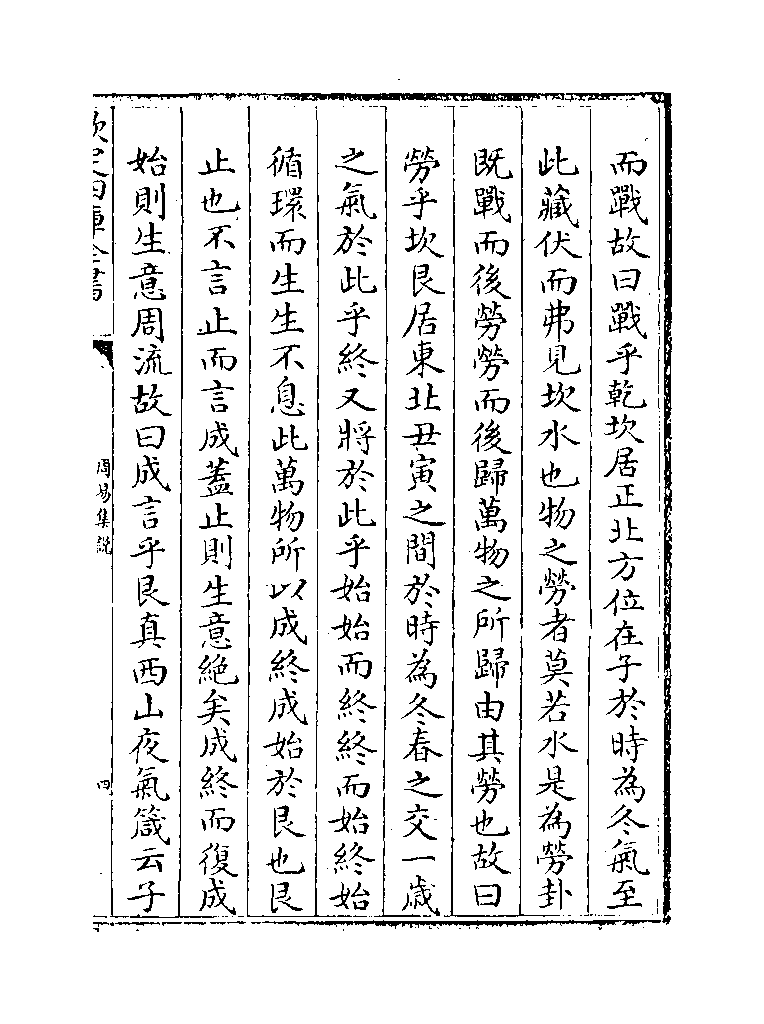 而戰故曰戰乎乾坎居正北方位在子於時為冬氣至
此藏伏而弗見坎水也物之勞者莫若水是為勞卦
既戰而後勞勞而後歸萬物之所歸由其勞也故曰
勞乎坎艮居東北丑寅之間於時為冬春之交一歳
之氣於此乎終又將於此乎始始而終終而始終始
循環而生生不息此萬物所以成終成始於艮也艮
止也不言止而言成蓋止則生意絶矣成終而復成
始則生意周流故曰成言乎艮真西山夜氣箴云子
欽定四庫全書
周易集説
四